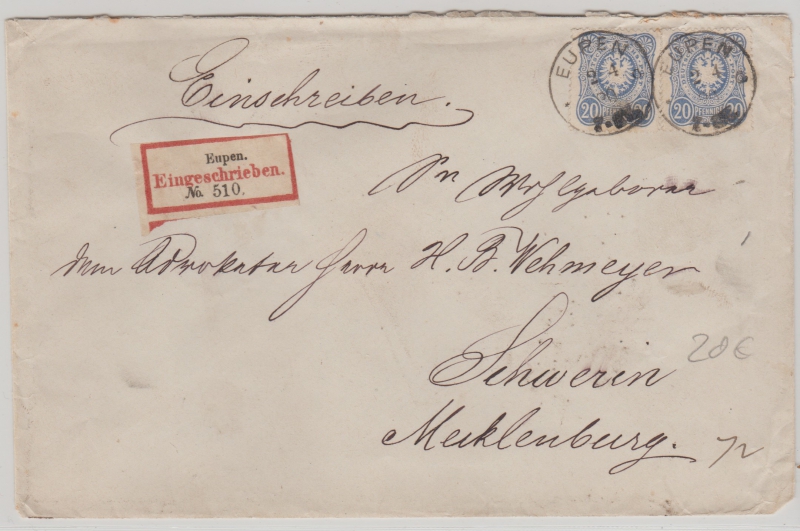 EUPEN EUPEN
20 PFENNIG 20 20 PFENNIG 20
Einschreiben.
Eupen.
Eingeschrieben.
No. 510.
Sr Wohlgeboren
dem Advokaten Herrn H. B. Wehmeyer
20 €
Schwerin
Mecklenburg.